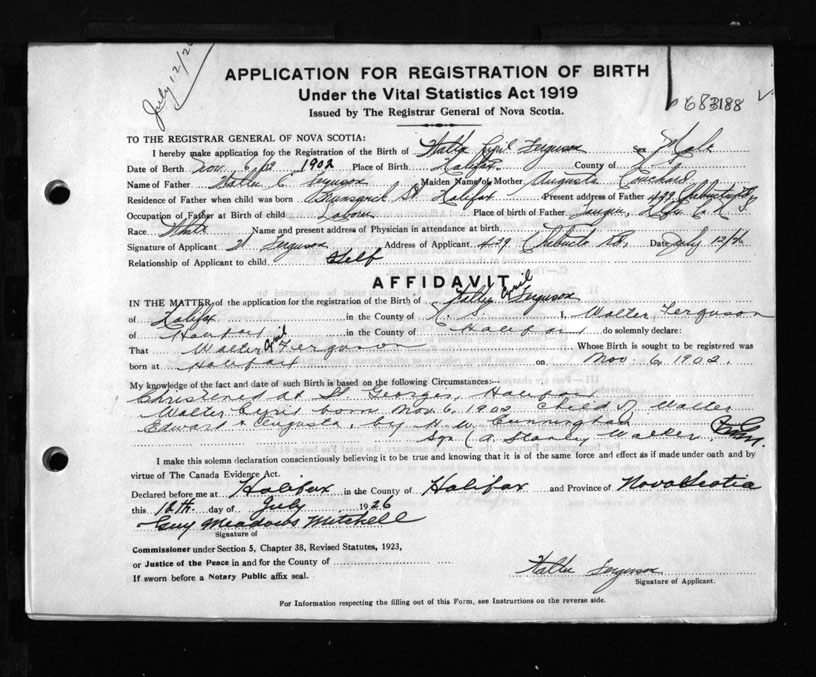 July 12/26
APPLICATION FOR REGISTRATION OF BIRTH
Under the Vital Statistics Act 1919
683188
Issued by The Registrar General of Nova Scotia.
TO THE REGISTRAR GENERAL OF NOVA SCOTIA:
I hereby make application for the Registration of the Birth of Walter Cyril Ferguson Sex Male
Date of Birth Nov. 6, 1902 Place of Birth Halifax County of
Name of Father Walter E Ferguson Maiden Name of Mother Augusta
Residence of Father when child was born Brunswick St Halifax Present address of Father
Occupation of Father at Birth of child Laborer Place of birth of Father
Race White Name and present address of Physician in attendance at birth
Signature of Applicant W. Ferguson Address of Applicant 439 Chebucto Rd. Date July 12/26
Relationship of Applicant to child Self
AFFIDAVIT
IN THE MATTER of the application for the registration of the Birth of Walter Cyril Ferguson
of Halifax in the County of N. S. I, Walter Ferguson
of Halifax in the County of Halifax do solemnly declare:
That Walter Cyril Ferguson Whose Birth is sought to be registered was
born at Halifax on Nov. 6, 1902.
My knowledge of the fact and date of such Birth is based on the following Circumstances:—
Christened at St Georges, Halifax
Walter Cyril born Nov. 6, 1902 child of Walter
Edward & Augusta, by H. W. Cunningham
Sgn (A. Stanley Walker.
I make this solemn declaration conscientiously believing it to be true and knowing that it is of the same force and effect as if made under oath and by
virtue of The Canada Evidence Act.
Declared before me at Halifax in the County of Halifax and Province of Nova Scotia
this 12th day of July 1926
Guy Meadows Mitchell
Signature of
Commissioner under Section 5, Chapter 38, Revised Statutes, 1923,
or Justice of the Peace in and for the County of
If sworn before a Notary Public affix seal.
Walter Ferguson
Signature of Applicant.
For Information respecting the filling out of this Form, see Instructions on the reverse side.